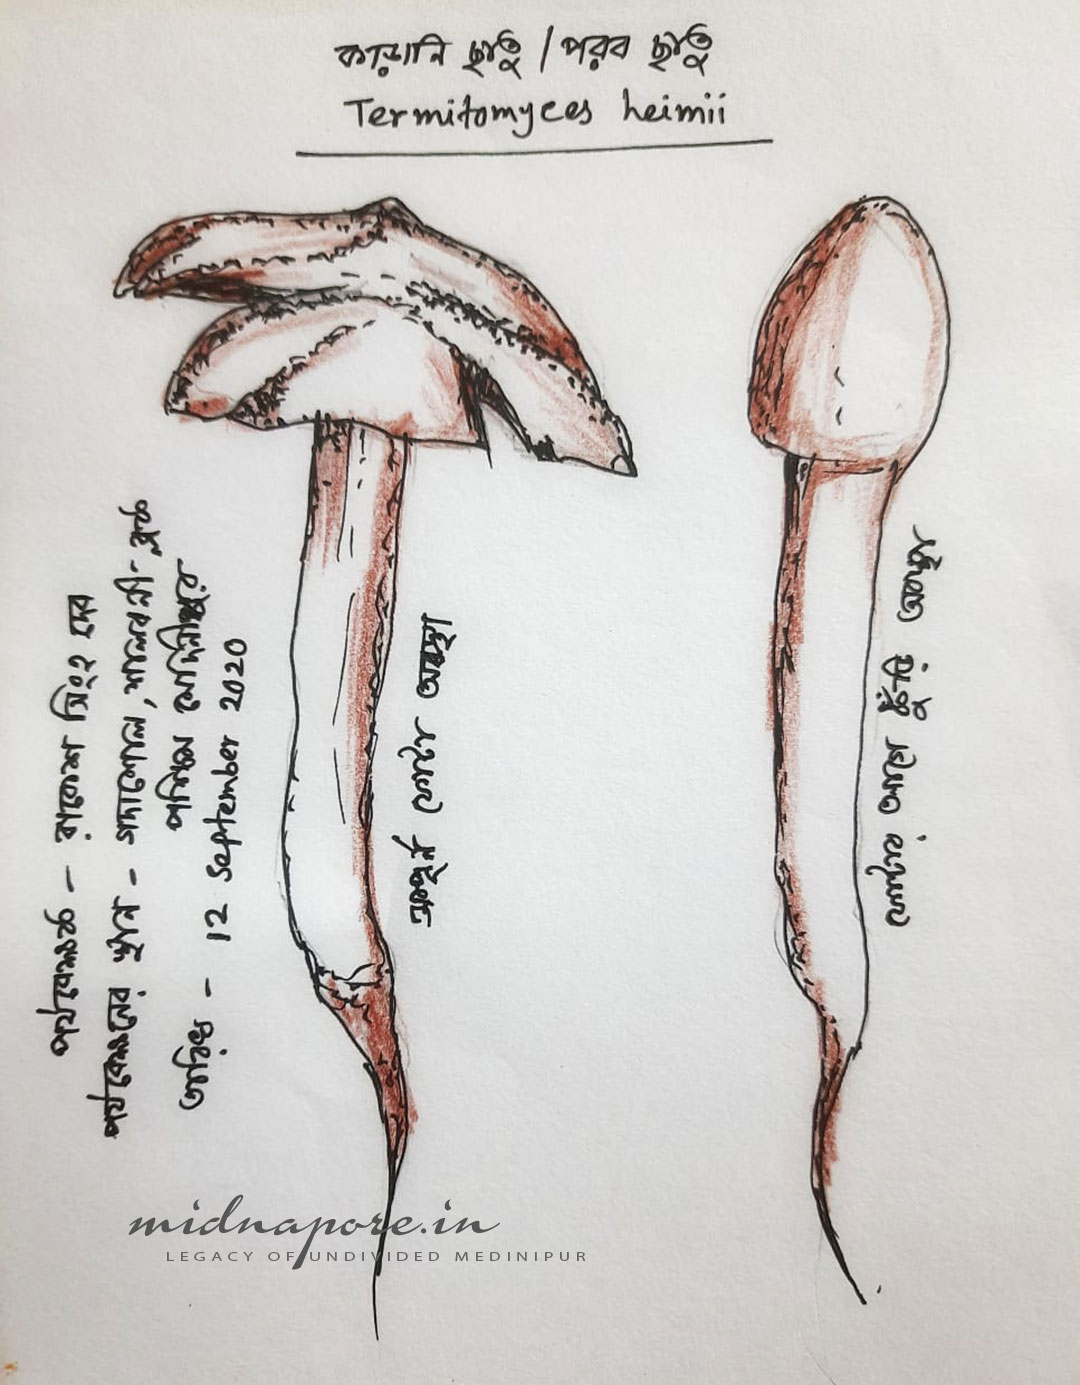 কাড়ানি ছাতু / পরব ছাতু
Termitomyces heimii
পর্যবেক্ষক - রাকেশ সিংহ দেব
পর্যবেক্ষনের স্থান - গদাশোল, শালবনী ব্লক
পশ্চিম মেদিনীপুর
তারিখ - 12 September 2020
সম্পূর্ন ফোটা অবস্থা
কুঁড়ি অবস্থা
midnapore.in
LEGACY OF UNDIVIDED MEDINIPUR